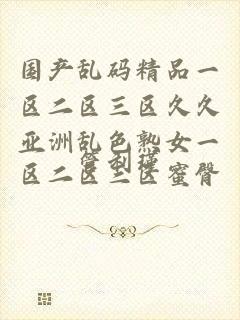 国产乱码精品一
区二区三区久久
亚洲乱色熟女一
区二区三区蜜臀